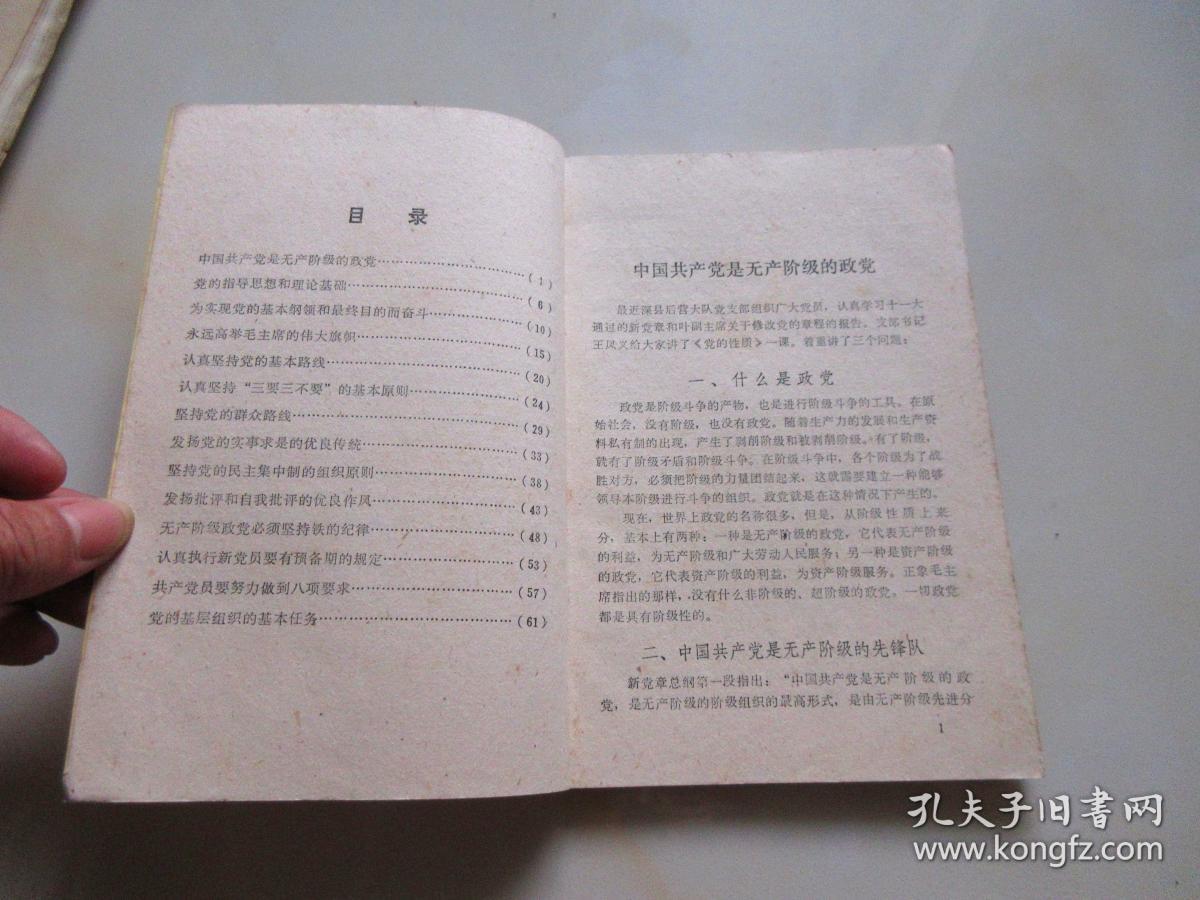 目 录
中国共产党是无产阶级的政党……………………(1)
党的指导思想和理论基础……………………(6)
为实现党的基本纲领和最终目的而奋斗……………(10)
永远高举毛主席的伟大旗帜……………………(15)
认真坚持党的基本路线……………………(20)
认真坚持“三要三不要”的基本原则……………(24)
坚持党的群众路线……………………(29)
发扬党的实事求是的优良传统……………………(33)
坚持党的民主集中制的组织原则……………………(38)
发扬批评和自我批评的优良作风……………………(43)
无产阶级政党必须坚持铁的纪律……………………(48)
认真执行新党员要有预备期的规定……………………(53)
共产党员要努力做到八项要求……………………(57)
党的基层组织的基本任务……………………(61)
中国共产党是无产阶级的政党
最近深县后营大队党支部组织广大党员，认真学习十一大
通过的新党章和叶副主席关于修改党的章程的报告。支部书记
王凤义给大家讲了《党的性质》一课。着重讲了三个问题：
一、什么是政党
政党是阶级斗争的产物，也是进行阶级斗争的工具。在原
始社会，没有阶级，也没有政党。随着生产力的发展和生产资
料私有制的出现，产生了剥削阶级和被剥削阶级。有了阶级，
就有了阶级矛盾和阶级斗争。在阶级斗争中，各个阶级为了战
胜对方，必须把阶级的力量团结起来，这就需要建立一种能够
领导本阶级进行斗争的组织。政党就是在这种情况下产生的。
现在，世界上政党的名称很多，但是，从阶级性质上来
分，基本上有两种：一种是无产阶级的政党，它代表无产阶级
的利益，为无产阶级和广大劳动人民服务；另一种是资产阶级
的政党，它代表资产阶级的利益，为资产阶级服务。正象毛主
席指出的那样，没有什么非阶级的、超阶级的政党。一切政党
都是具有阶级性的。
二、中国共产党是无产阶级的先锋队
新党章总纲第一段指出：“中国共产党是无产阶级的政
党，是无产阶级的阶级组织的最高形式，是由无产阶级先进分
1
孔夫子旧书网
www.kongfz.com